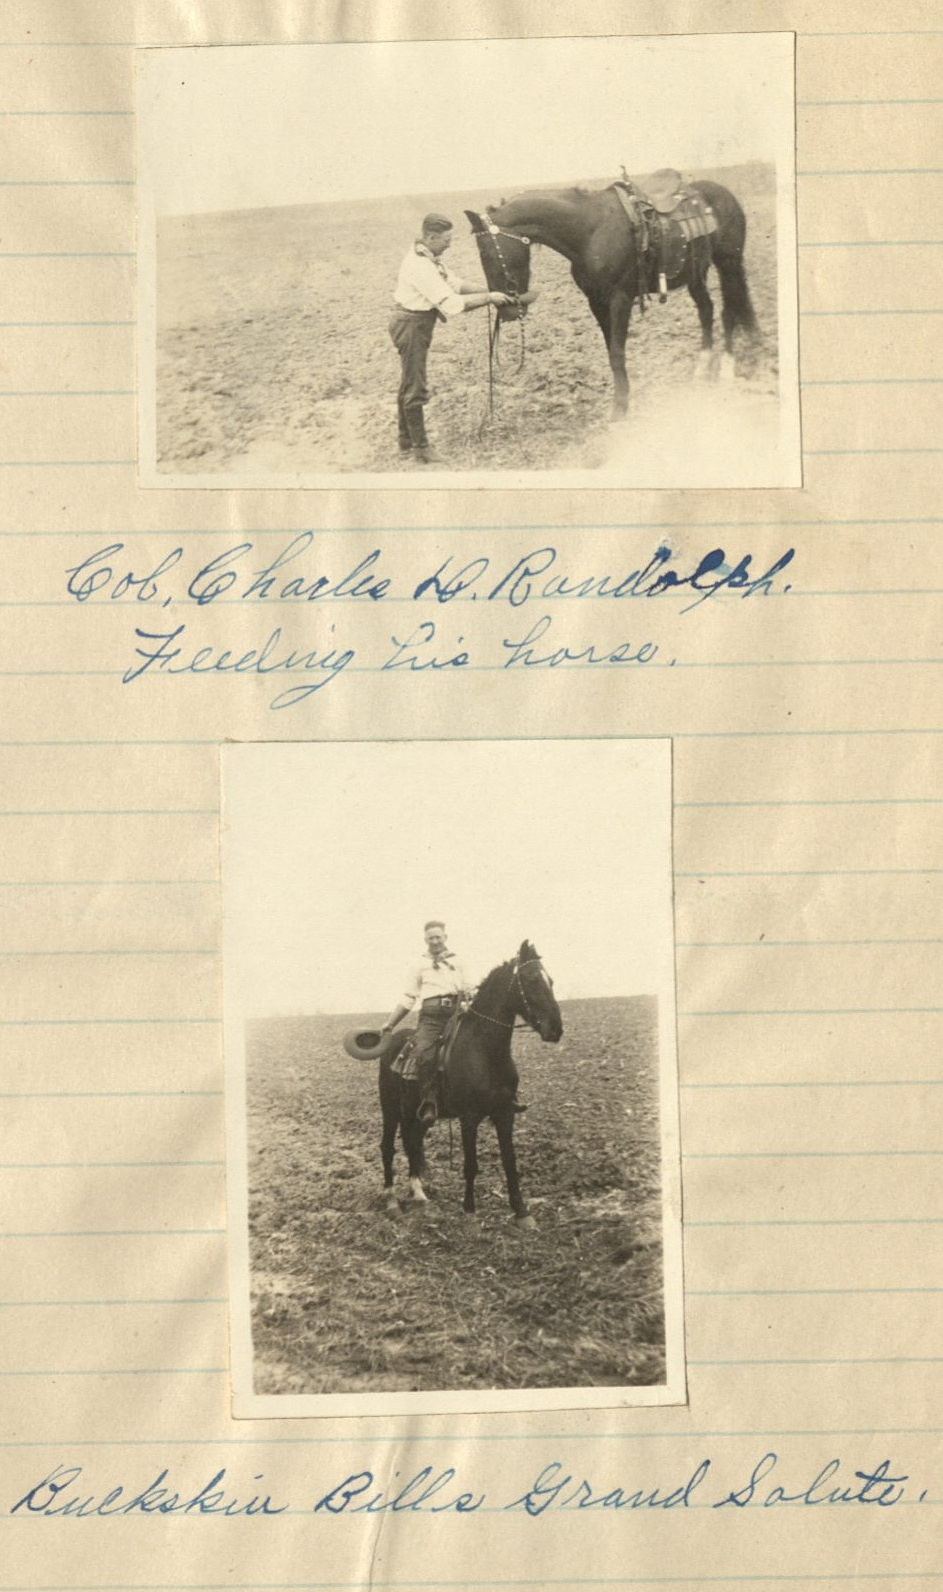 Col. Charles D. Randolph.
Feeding his horse.
Buckskin Bills Grand Salute.